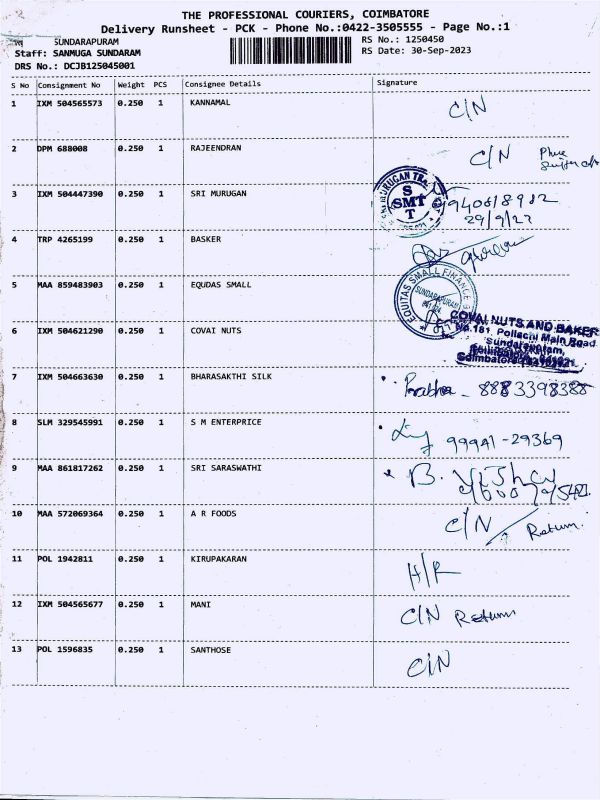 THE PROFESSIONAL COURIERS, COIMBATORE
Delivery Runsheet - PCK - Phone No.:0422-3505555 - Page No.:1
SUNDARAPURAM
RS No.: 1250450
Staff: SANMUGA SUNDARAM
RS Date: 30-Sep-2023
DRS No.: DCJB125045001
S No Consignment No Weight PCS Consignee Details Signature
1 IXM 504565573 0.250 1 KANNAMAL C/N
2 DPM 688008 0.250 1 RAJEENDRAN C/N
3 IXM 504447390 0.250 1 SRI MURUGAN
SMT
4 TRP 4265199 0.250 1 BASKER
5 MAA 859483903 0.250 1 EQUDAS SMALL
EQUITAS SMALL FINANCE
SUNDARAPURAM
6 IXM 504621290 0.250 1 COVAI NUTS
COVAI NUTS AND BAKER
No.181, Pollachi Main Road
Sundarapuram,
7 IXM 504663630 0.250 1 BHARASAKTHI SILK Prabha - 8883398388
8 SLM 329545991 0.250 1 S M ENTERPRICE 99941-29369
9 MAA 861817262 0.250 1 SRI SARASWATHI B.
10 MAA 572069364 0.250 1 A R FOODS C/N Return.
11 POL 1942811 0.250 1 KIRUPAKARAN H/R
12 IXM 504565677 0.250 1 MANI C/N Return
13 POL 1596835 0.250 1 SANTHOSE C/N